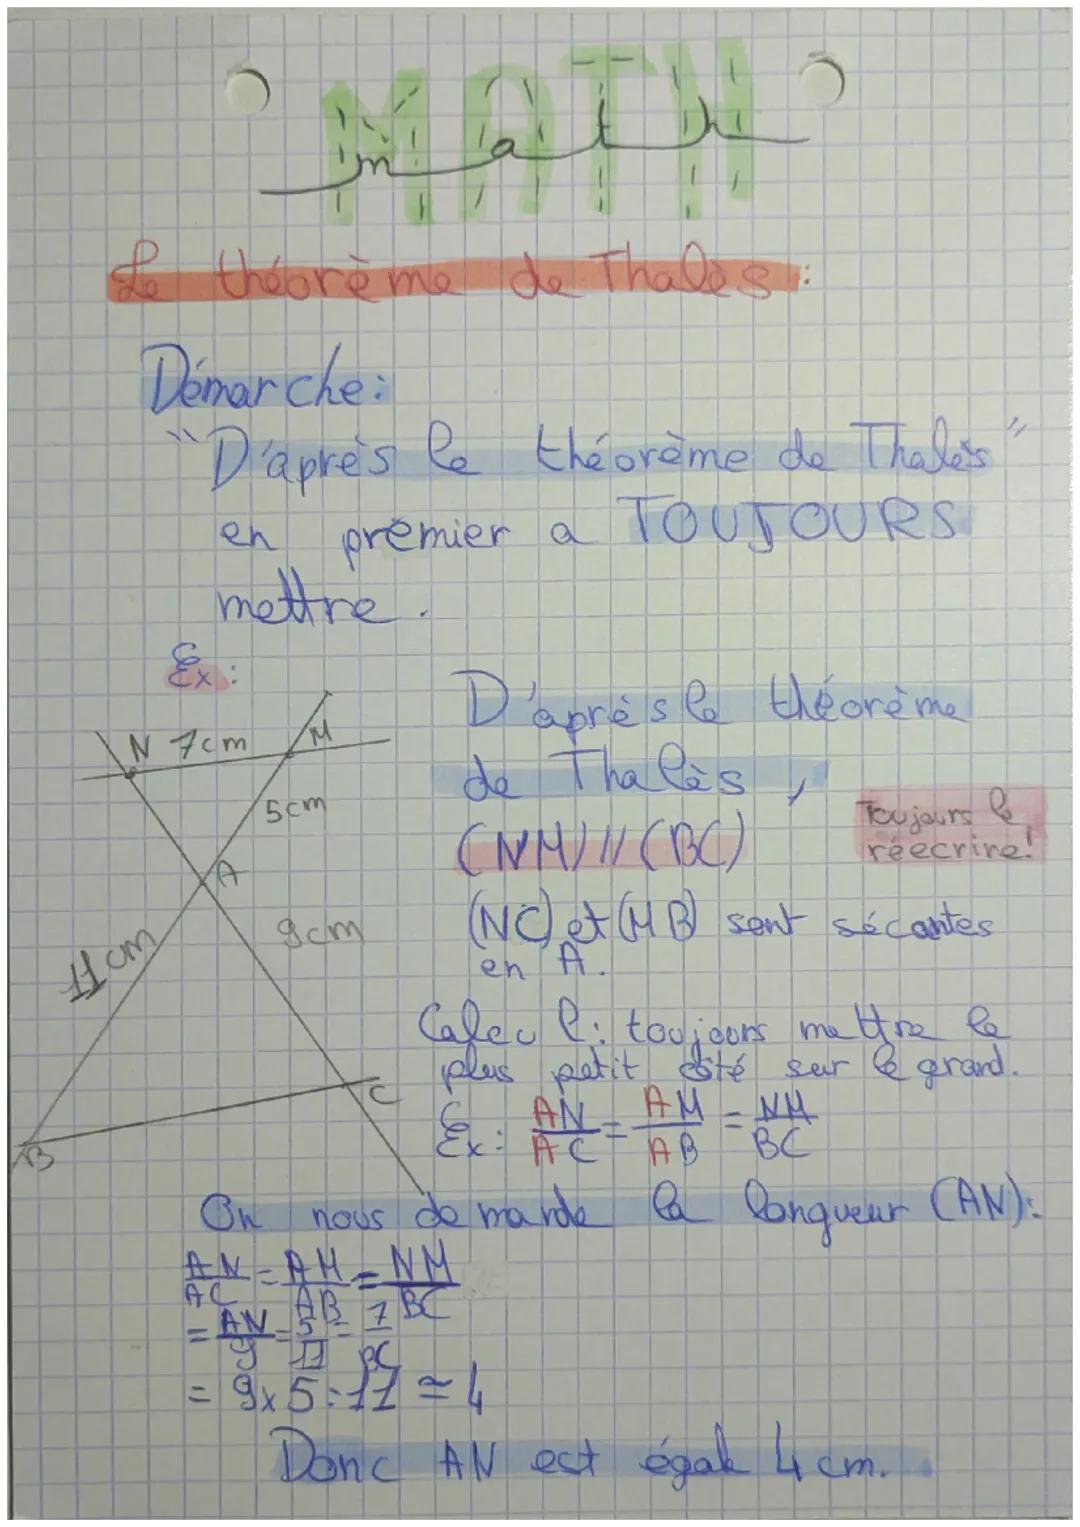 MATH
math
Le théorème de Thalès :
Démarche :
"D'après le théorème de Thalès"
en premier a TOUJOURS
mettre.
Ex :
N 7cm M
5cm
A
9cm
11cm
C
B
D'après le théorème
de Thalès,
(NM) // (BC)
Toujours le
réecrire!
(NC) et (MB) sont sécantes
en A.
Calcul : toujours mettre le
plus petit côté sur le grand.
Ex : AN/AC = AM/AB = NM/BC
On nous demande la longueur (AN) :
AN/AC = AM/AB = NM/BC
= AN/9 = 5/11 = 7/BC
= 9x5:11 ≃ 4
Donc AN est égale 4cm.